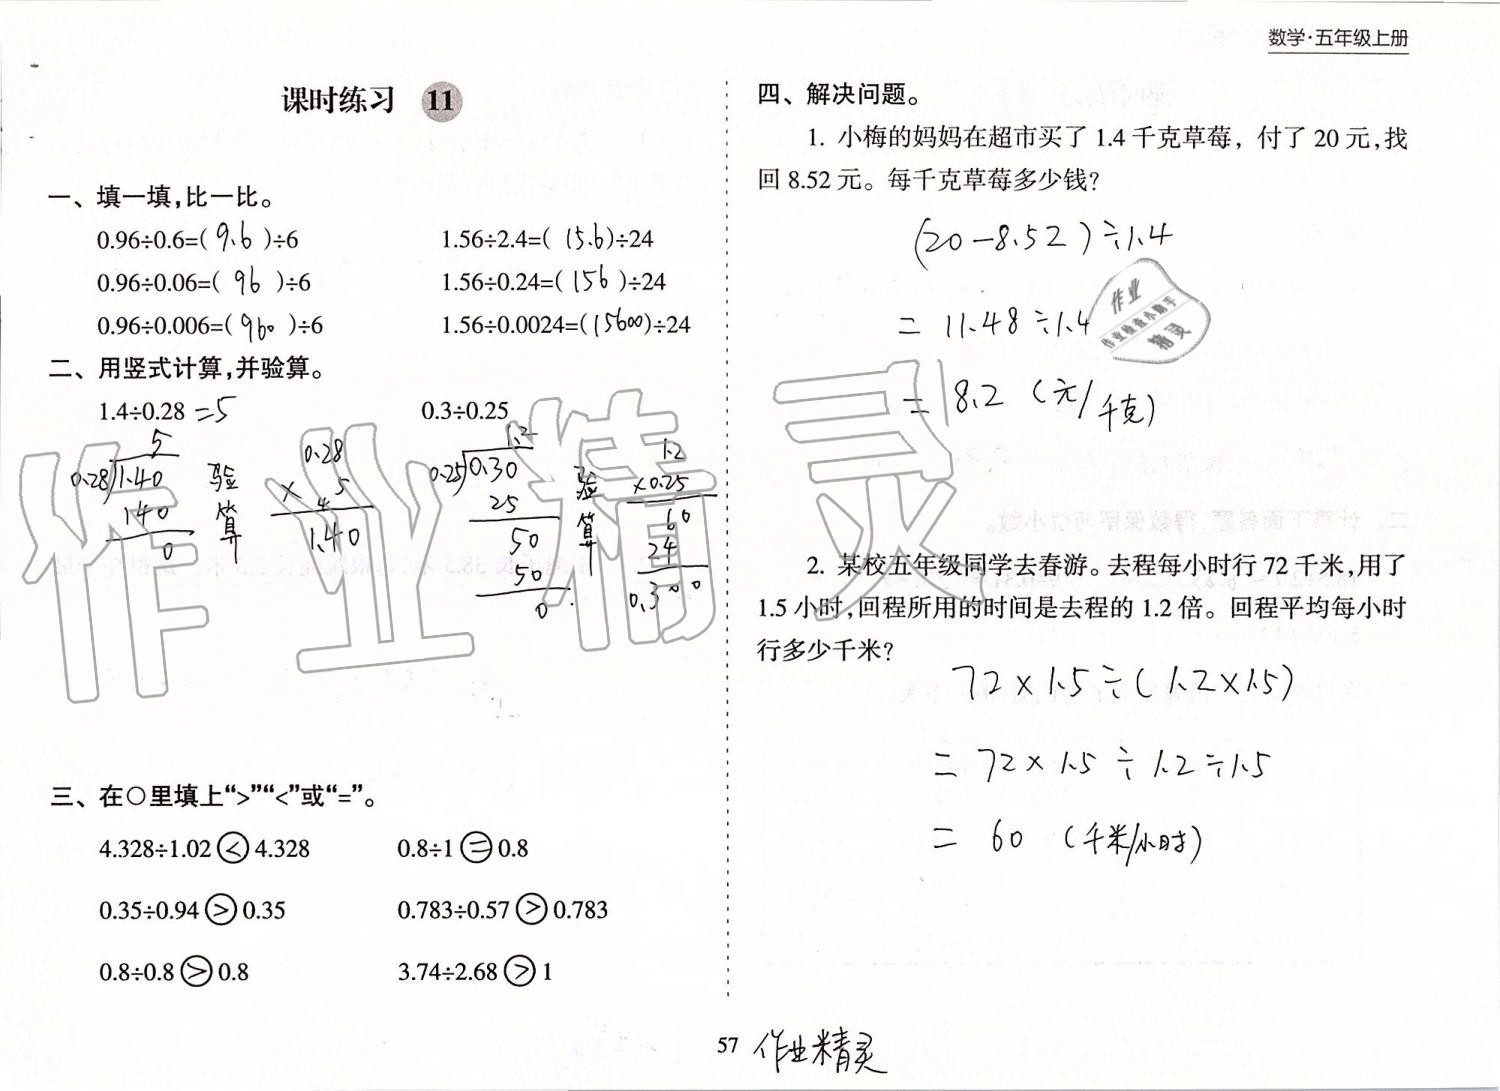 数学·五年级上册
课时练习 11
一、填一填,比一比。
0.96÷0.6=( 9.6 )÷6 1.56÷2.4=( 15.6 )÷24
0.96÷0.06=( 96 )÷6 1.56÷0.24=( 156 )÷24
0.96÷0.006=( 960 )÷6 1.56÷0.0024=(15600)÷24
二、用竖式计算,并验算。
1.4÷0.28 =5 0.3÷0.25
5
0.28 1.40
140
0
验算
0.28
× 5
4
1.40
1.2
0.25 0.30
25
50
50
0
验算
1.2
×0.25
60
24
0.300
三、在○里填上“>”“<”或“=”。
4.328÷1.02 < 4.328 0.8÷1 = 0.8
0.35÷0.94 > 0.35 0.783÷0.57 > 0.783
0.8÷0.8 > 0.8 3.74÷2.68 > 1
四、解决问题。
1. 小梅的妈妈在超市买了 1.4 千克草莓，付了 20 元,找
回 8.52 元。每千克草莓多少钱?
(20-8.52)÷1.4
= 11.48÷1.4
= 8.2 (元/千克)
作业
作业检查小助手
精灵
2. 某校五年级同学去春游。去程每小时行 72 千米,用了
1.5 小时,回程所用的时间是去程的 1.2 倍。回程平均每小时
行多少千米?
72×1.5÷(1.2×1.5)
= 72×1.5÷1.2÷1.5
= 60 (千米/小时)
作业精灵
57 作业精灵